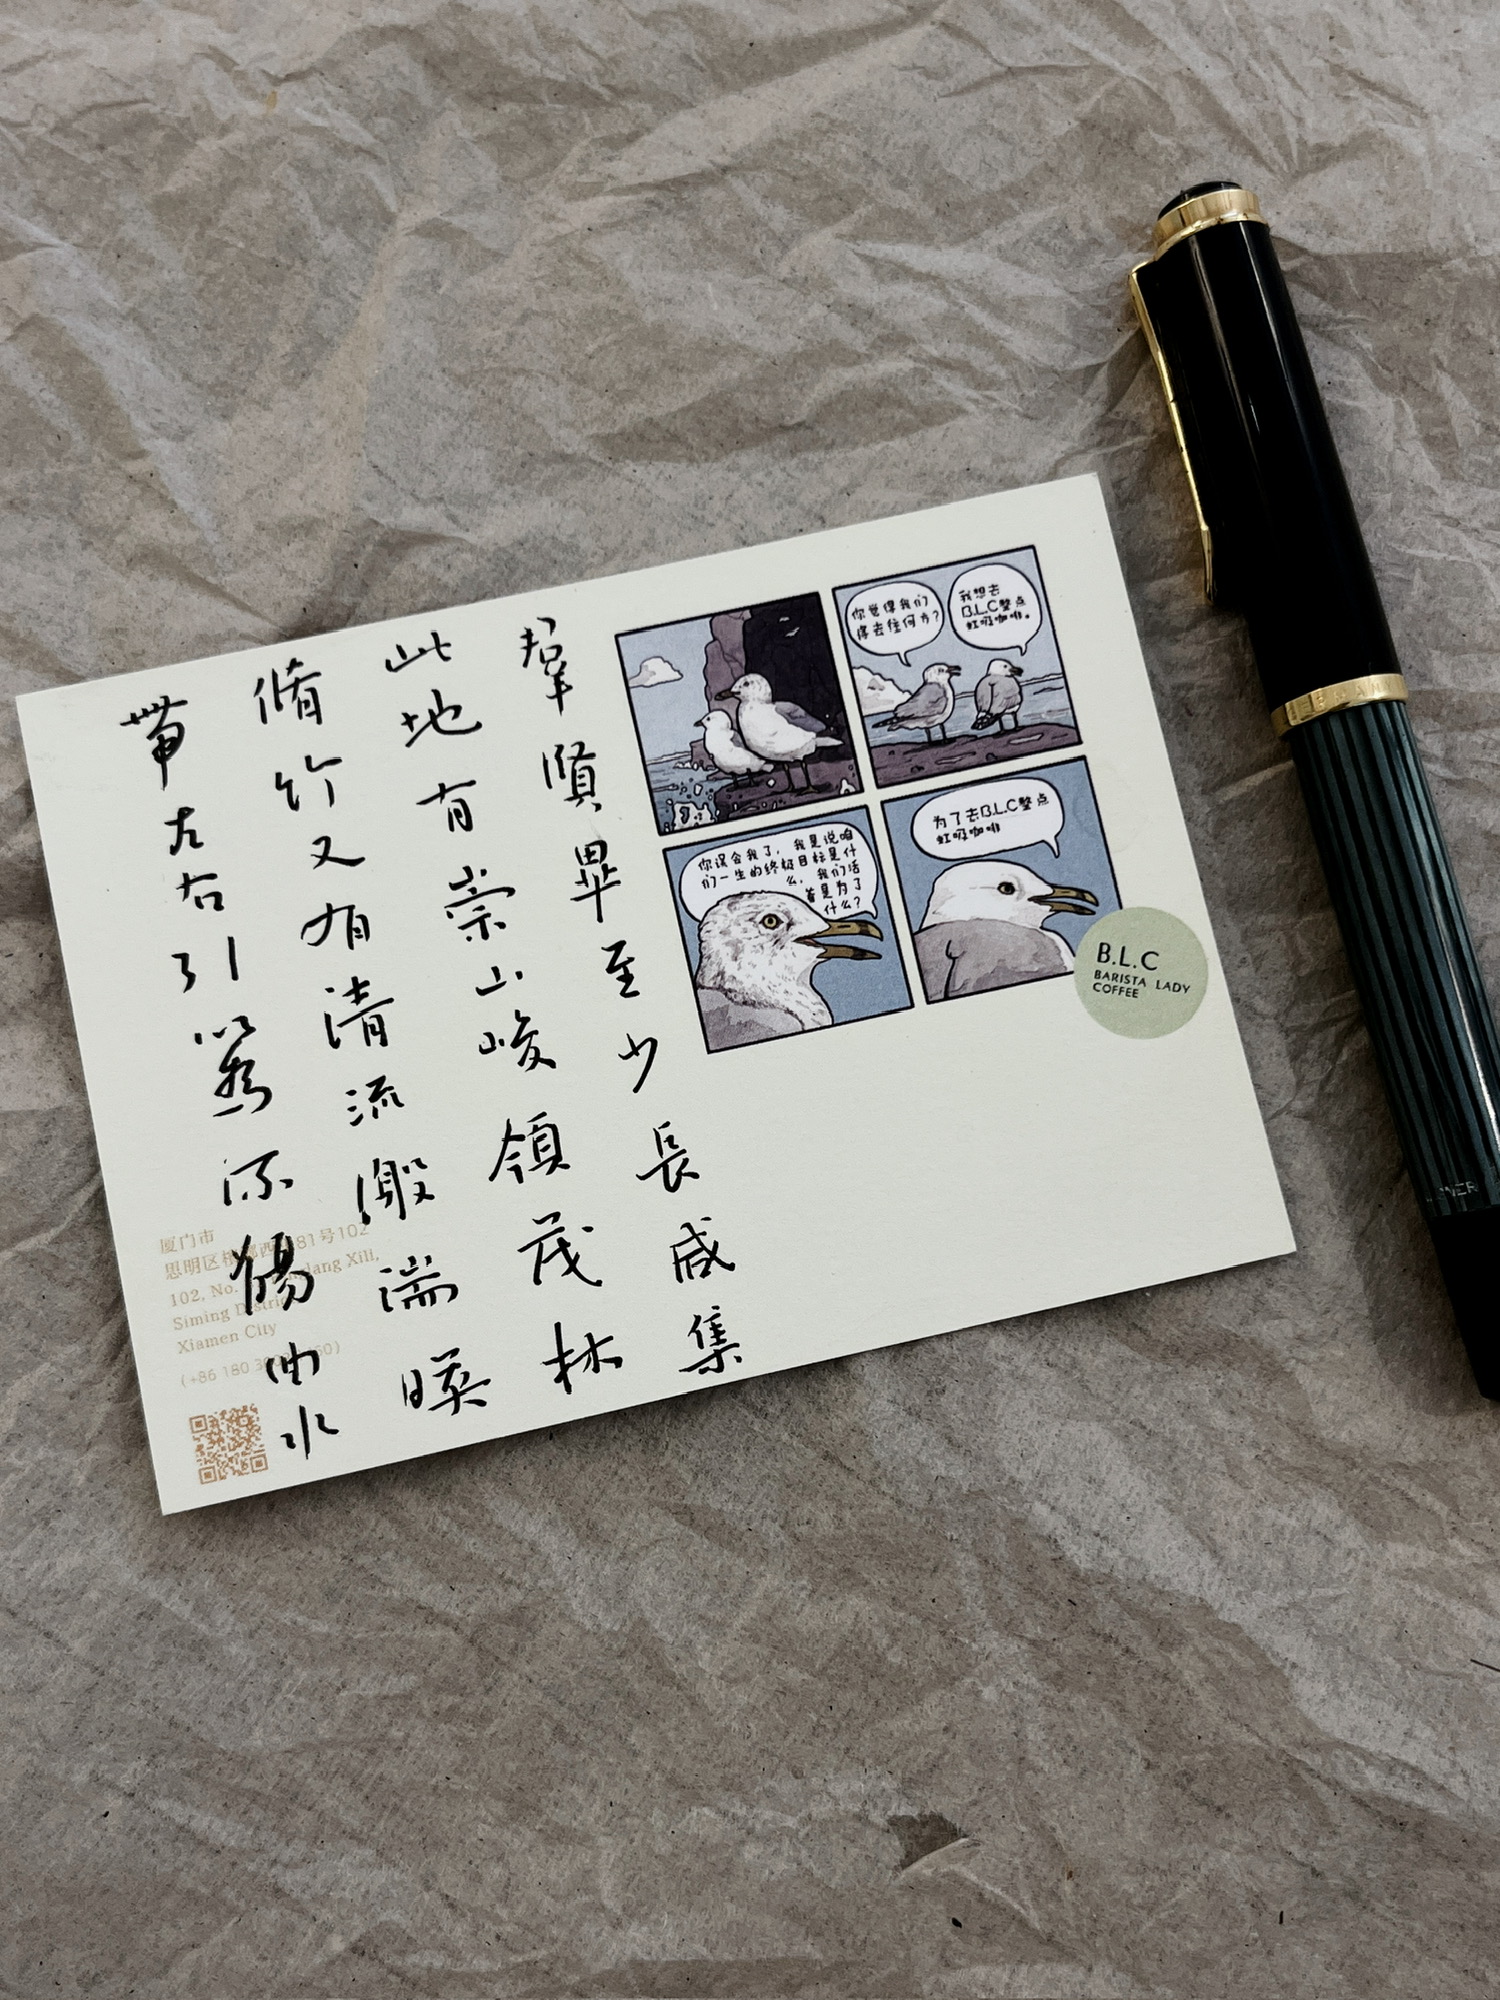 羣賢畢至少長咸集
此地有崇山峻領茂林
脩竹又有清流激湍暎
帶左右引以爲流觴曲水
你觉得我们
得去往何方?
我想去
B.L.C整点
虹吸咖啡。
你误会我了，我是说咱
们一生的终极目标是什
么，我们活
着是为了
什么?
为了去B.L.C整点
虹吸咖啡
B.L.C
BARISTA LADY
COFFEE
厦门市
思明区 西 81号102
102, No. lang Xili,
Siming District
Xiamen City
(+86 180